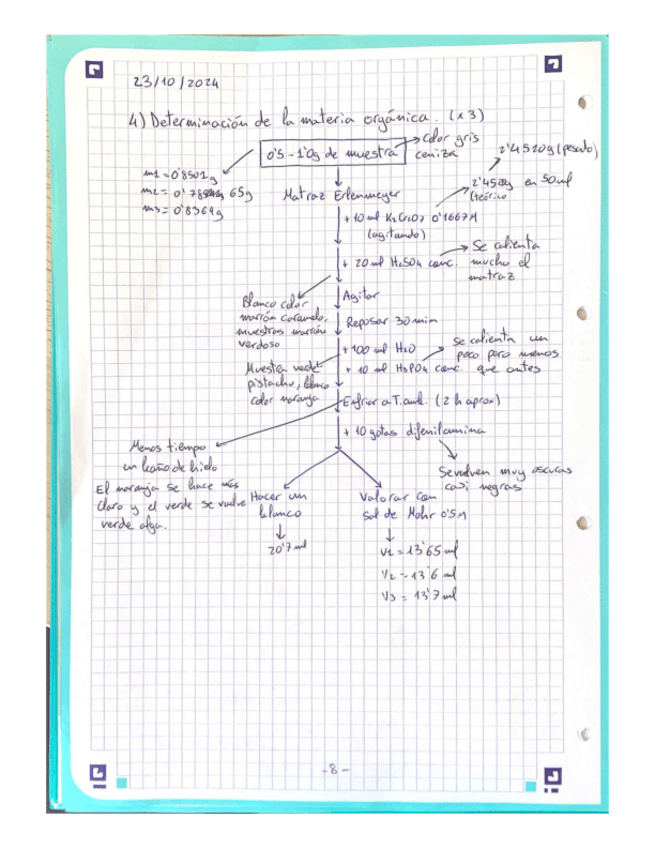 23/10/2024
4) Determinación de la materia orgánica. (x3)
0'5-1'0g de muestra
Color gris
ceniza
2'4520g (pesado)
m1 = 0'8501g
m2 = 0'78 65g
m3 = 0'8364g
Matraz Erlenmeyer
2'4520g en 50ml
(teórico
+ 10 ml K2Cr2O7 0'1667M
(agitando)
+ 20 ml H2SO4 conc.
Se calienta
mucho el
matraz
Agitar
Blanco color
marrón caramelo,
muestras marrón
verdoso
Reposar 30 min
+ 100 ml H2O
+ 10 ml H3PO4 conc.
Se calienta un
poco pero menos
que antes
Muestra verde
pistacho, blanco
color naranja
Enfriar a T.amb. (2 h aprox)
+ 10 gotas difenilamina
Menos tiempo
en baño de hielo
Se vuelven muy oscuras
casi negras
El naranja se hace más
claro y el verde se vuelve
verde alga.
Hacer un
blanco
20'7 ml
Valorar con
sal de Mohr 0'5M
V1 = 13'65 ml
V2 = 13'6 ml
V3 = 13'7 ml
-8-